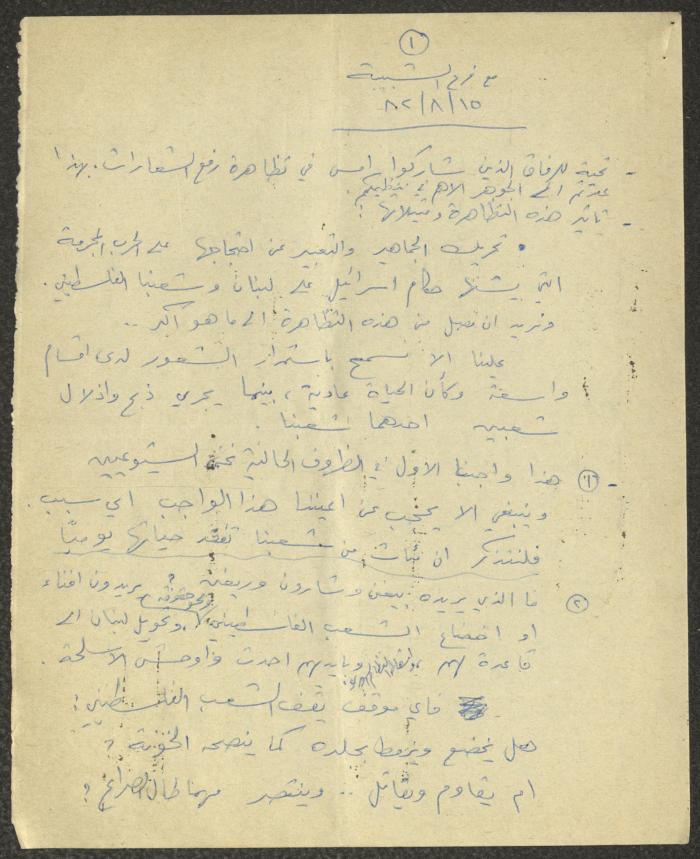 ١
مع فرع الشبيبة
٨٢/٨/١٥
- تحية للرفاق الذين شاركوا امس في تظاهرة رفع الشعارات. بهذا
عدتم الى الجوهر الاهم في تنظيمكم.
- تاثير هذه التظاهرة ومثيلاتها:
• تحريك الجماهير والتعبير عن احتجاجها على الحرب المجرمة
التي يشنها حكام اسرائيل على لبنان وشعبنا الفلسطيني.
ونريد ان نصل من هذه التظاهرة الى ما هو اكبر..
علينا الا نسمح باستمرار الشعور لدى اقسام
واسعة وكأن الحياة عادية، بينما يجري ذبح واذلال
شعبين احدهما شعبنا.
- (١) هذا واجبنا الاول في الظروف الحالية نحن الشيوعيين
وينبغي الا يحجب عن اعيننا هذا الواجب اي سبب.
فلنتذكر ان مئات من شعبنا تفقد حياتها يوميًا
(٢) ما الذي يريده بيغن وشارون وريغن؟ يريدون افناء
او اخضاع الشعب الفلسطيني ومحو حقوقه، وتحويل لبنان الى
قاعدة لهم، وبايديهم احدث واوحش الاسلحة.
فاي موقف يقف الشعب الفلسطيني:
هل يخضع ويزمط بجلده كما ينصحه الخونة؟
ام يقاوم ويقاتل.. وينتصر مهما طال الصراع؟